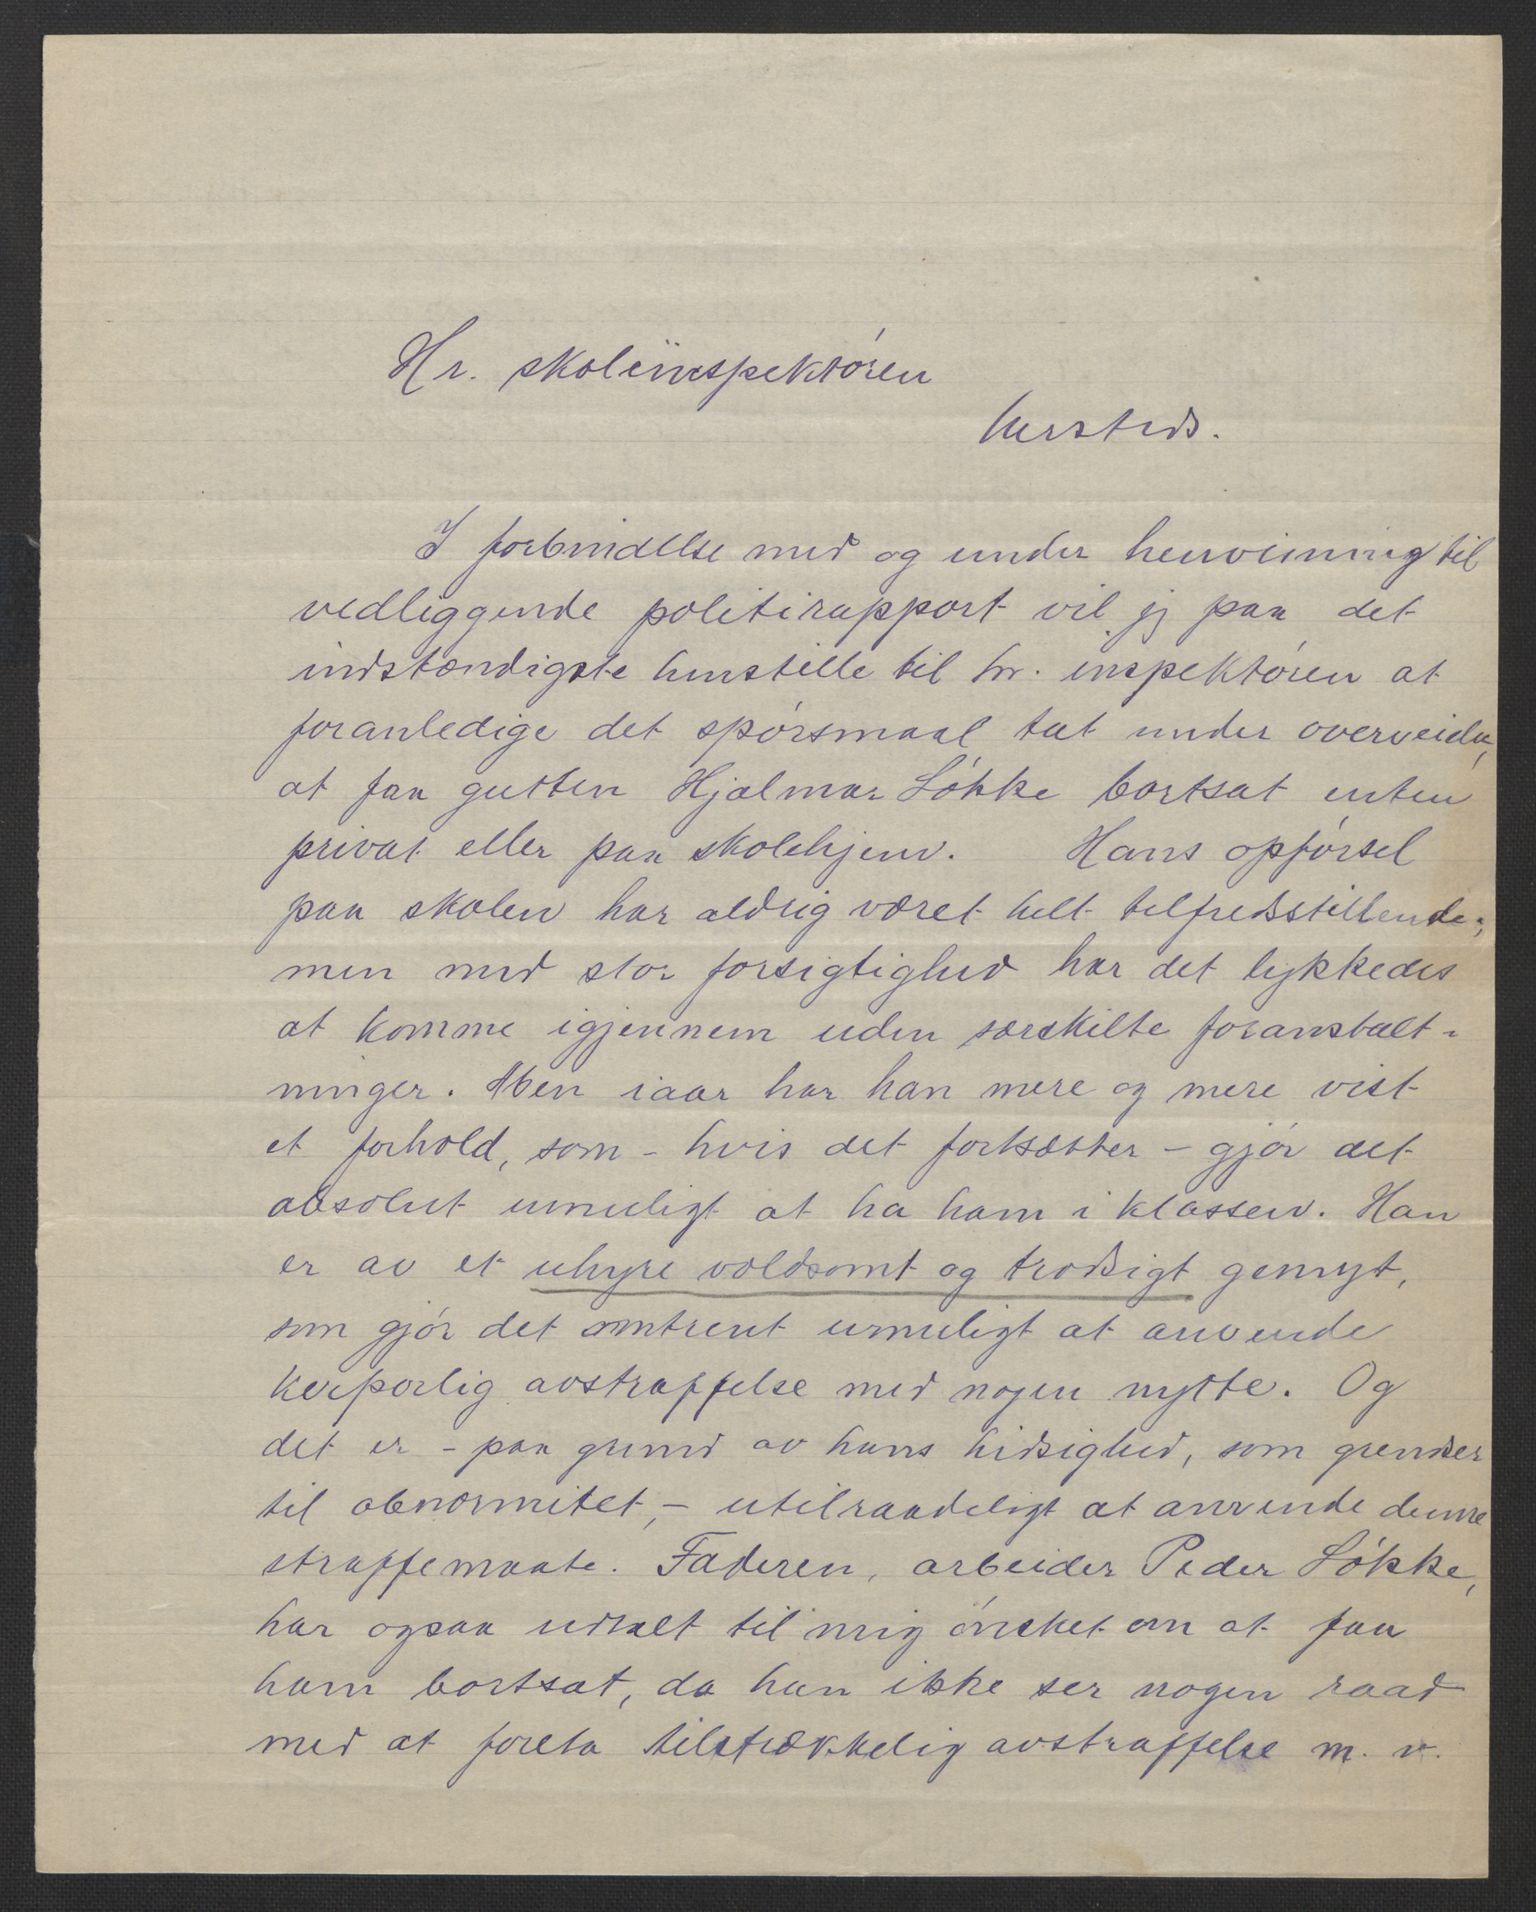 Hr. skoleinspektøren
hersteds.
I forbindelse med og under henvisning til
vedliggende politirapport vil jeg paa det
indstændigste henstille til hr. inspektøren at
foranledige det spørsmaal tat under overveielse,
at faa gutten Hjalmar Løkke bortsat enten
privat eller paa skolehjem. Hans opførsel
paa skolen har aldrig været helt tilfredsstillende;
men med stor forsigtighed har det lykkedes
at komme igjennem uden særskilte foranstalt-
ninger. Men iaar har han mere og mere vist
et forhold, som - hvis det fortsætter - gjør det
absolut umuligt at ha ham i klassen. Han
er av et uhyre voldsomt og trodsigt gemyt,
som gjør det omtrent umuligt at anvende
korporlig avstraffelse med nogen nytte. Og
det er - paa grund av hans hidsighed, som grendser
til abnormitet, - utilraadeligt at anvende denne
straffemaate. Faderen, arbeider Peder Løkke,
har ogsaa udtalt til mig ønsket om at faa
ham bortsat, da han ikke ser nogen raad
med at foreta tilstrækkelig avstraffelse m. v.